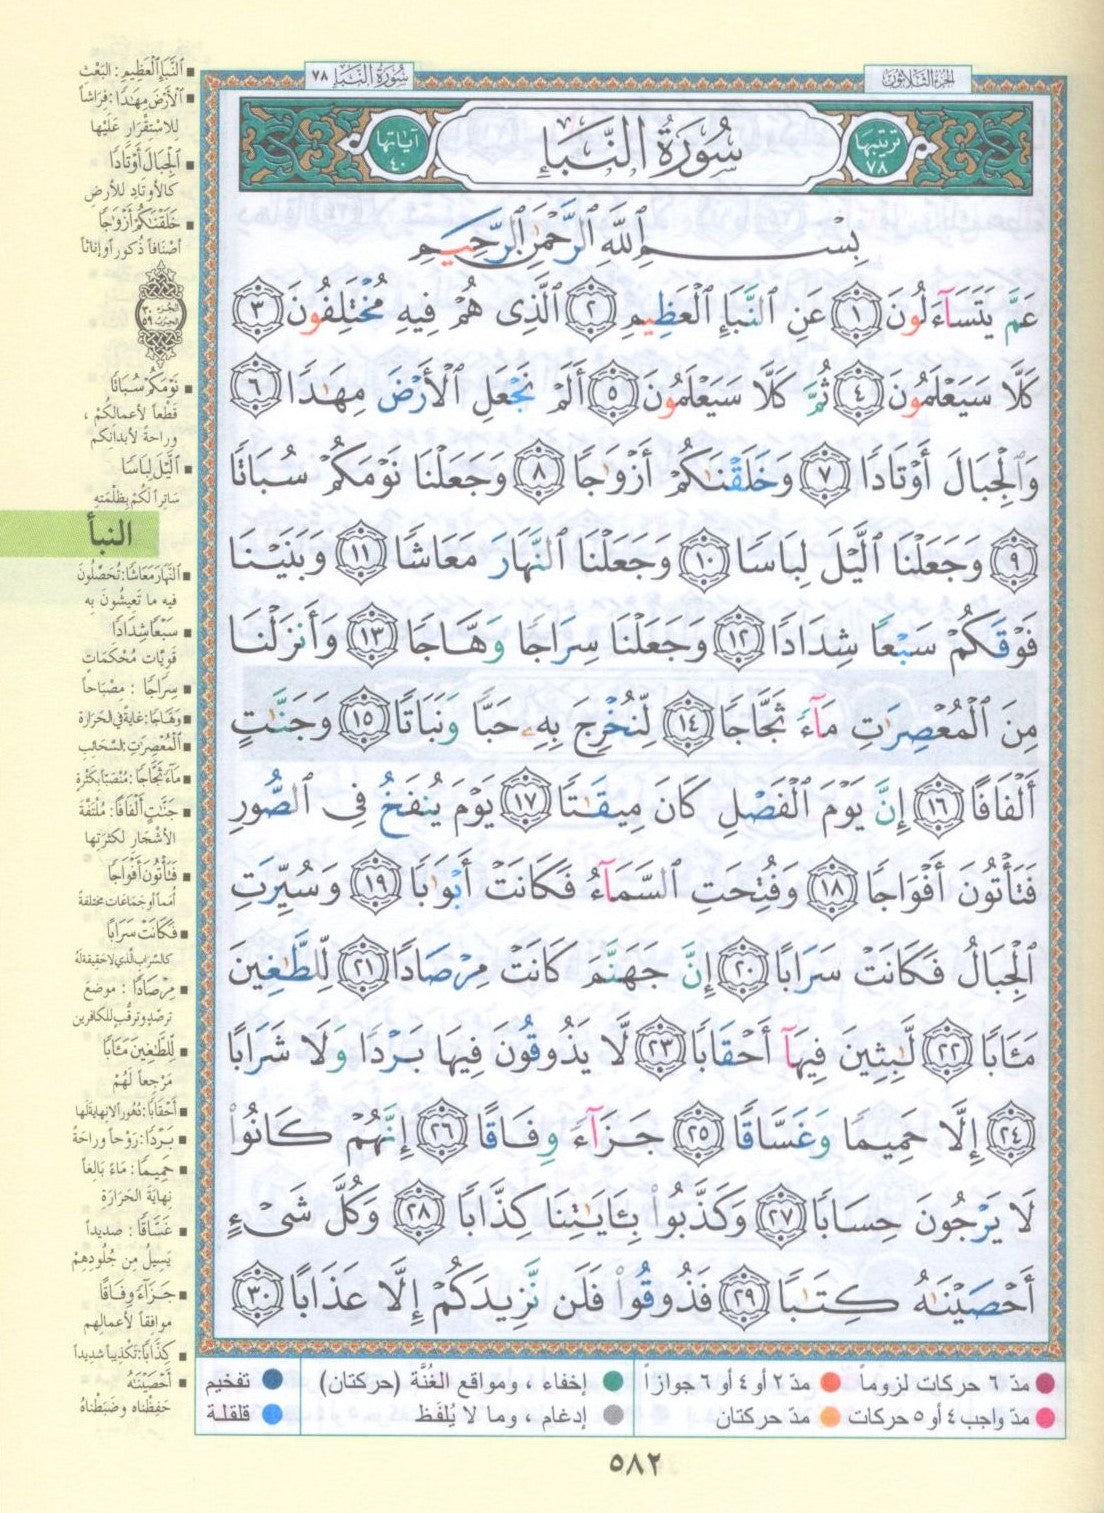 الجزء الثلاثون
سورة النبإ ٧٨
ترتيبها ٧٨
سُورَةُ النَّبَإِ
آياتها ٤٠
بِسْمِ ٱللَّهِ ٱلرَّحْمَٰنِ ٱلرَّحِيمِ
عَمَّ يَتَسَآءَلُونَ ١ عَنِ ٱلنَّبَإِ ٱلْعَظِيمِ ٢ ٱلَّذِى هُمْ فِيهِ مُخْتَلِفُونَ ٣
كَلَّا سَيَعْلَمُونَ ٤ ثُمَّ كَلَّا سَيَعْلَمُونَ ٥ أَلَمْ نَجْعَلِ ٱلْأَرْضَ مِهَٰدًا ٦
وَٱلْجِبَالَ أَوْتَادًا ٧ وَخَلَقْنَٰكُمْ أَزْوَٰجًا ٨ وَجَعَلْنَا نَوْمَكُمْ سُبَاتًا
٩ وَجَعَلْنَا ٱلَّيْلَ لِبَاسًا ١٠ وَجَعَلْنَا ٱلنَّهَارَ مَعَاشًا ١١ وَبَنَيْنَا
فَوْقَكُمْ سَبْعًا شِدَادًا ١٢ وَجَعَلْنَا سِرَاجًا وَهَّاجًا ١٣ وَأَنزَلْنَا
مِنَ ٱلْمُعْصِرَٰتِ مَآءً ثَجَّاجًا ١٤ لِّنُخْرِجَ بِهِۦ حَبًّا وَنَبَاتًا ١٥ وَجَنَّٰتٍ
أَلْفَافًا ١٦ إِنَّ يَوْمَ ٱلْفَصْلِ كَانَ مِيقَٰتًا ١٧ يَوْمَ يُنفَخُ فِى ٱلصُّورِ
فَتَأْتُونَ أَفْوَاجًا ١٨ وَفُتِحَتِ ٱلسَّمَآءُ فَكَانَتْ أَبْوَٰبًا ١٩ وَسُيِّرَتِ
ٱلْجِبَالُ فَكَانَتْ سَرَابًا ٢٠ إِنَّ جَهَنَّمَ كَانَتْ مِرْصَادًا ٢١ لِّلطَّٰغِينَ
مَـَٔابًا ٢٢ لَّٰبِثِينَ فِيهَآ أَحْقَابًا ٢٣ لَّا يَذُوقُونَ فِيهَا بَرْدًا وَلَا شَرَابًا
٢٤ إِلَّا حَمِيمًا وَغَسَّاقًا ٢٥ جَزَآءً وِفَاقًا ٢٦ إِنَّهُمْ كَانُوا۟
لَا يَرْجُونَ حِسَابًا ٢٧ وَكَذَّبُوا۟ بِـَٔايَٰتِنَا كِذَّابًا ٢٨ وَكُلَّ شَىْءٍ
أَحْصَيْنَٰهُ كِتَٰبًا ٢٩ فَذُوقُوا۟ فَلَن نَّزِيدَكُمْ إِلَّا عَذَابًا ٣٠
النَّبَإِ الْعَظِيمِ: البَعْث
الْأَرْضَ مِهَٰدًا: فِرَاشاً
للاسْتِقْرَارِ عَلَيْها
الْجِبَالَ أَوْتَادًا
كالأوتادِ للأرض
خَلَقْنَٰكُمْ أَزْوَٰجًا
أصْنَافاً ذُكوراً وإناثاً
الجزء ٣٠
الحزب ٥٩
نَوْمَكُمْ سُبَاتًا
قَطْعاً لأعمالِكُمْ ،
وراحةً لأبدانِكم
الَّيْلَ لِبَاسًا
سَاتِراً لَكُمْ بِظُلْمَتِهِ
النبأ
النَّهَارَ مَعَاشًا: تُحَصِّلُونَ
فيه ما تَعِيشُونَ بِهِ
سَبْعًا شِدَادًا
قَوِيَّاتٍ مُحْكَمَاتٍ
سِرَاجًا : مِصْبَاحاً
وَهَّاجًا: غايةً في الحَرَارَة
الْمُعْصِرَٰتِ: السَّحَائِبِ
مَآءً ثَجَّاجًا: مُنْصَبّاً بكَثْرة
جَنَّٰتٍ أَلْفَافًا: مُلْتَفَّة
الأشْجَارِ لكثرتها
فَتَأْتُونَ أَفْوَاجًا
أُمَماً أو جَمَاعَات مختلفة
فَكَانَتْ سَرَابًا
كالسَّراب الَّذي لا حَقِيقَةَ لَهُ
مِرْصَادًا : موضعَ
ترصّدٍ وترقُّبٍ للكافرين
لِلطَّٰغِينَ مَـَٔابًا
مَرْجِعاً لَهُمْ
أَحْقَابًا: دُهُوراً لا نِهايَة لَها
بَرْدًا: رَوْحاً وراحَةً
حَمِيمًا: مَاءً بَالِغاً
نِهايَةَ الحَرَارَةِ
غَسَّاقًا : صَدِيداً
يَسِيلُ مِن جُلُودِهِمْ
جَزَآءً وِفَاقًا
موافِقاً لأعمالِهِم
كِذَّابًا: تَكْذِيباً شَدِيداً
أَحْصَيْنَٰهُ
حَفِظْناه وضَبَطْناهُ
مدّ ٦ حركات لزوماً
مدّ ٢ أو ٤ أو ٦ جوازاً
إخفاء ، ومواقع الغُنَّة (حركتان)
تفخيم
مدّ واجب ٤ أو ٥ حركات
مدّ حركتان
إدغام ، وما لا يُلفَظ
قلقلة
٥٨٢